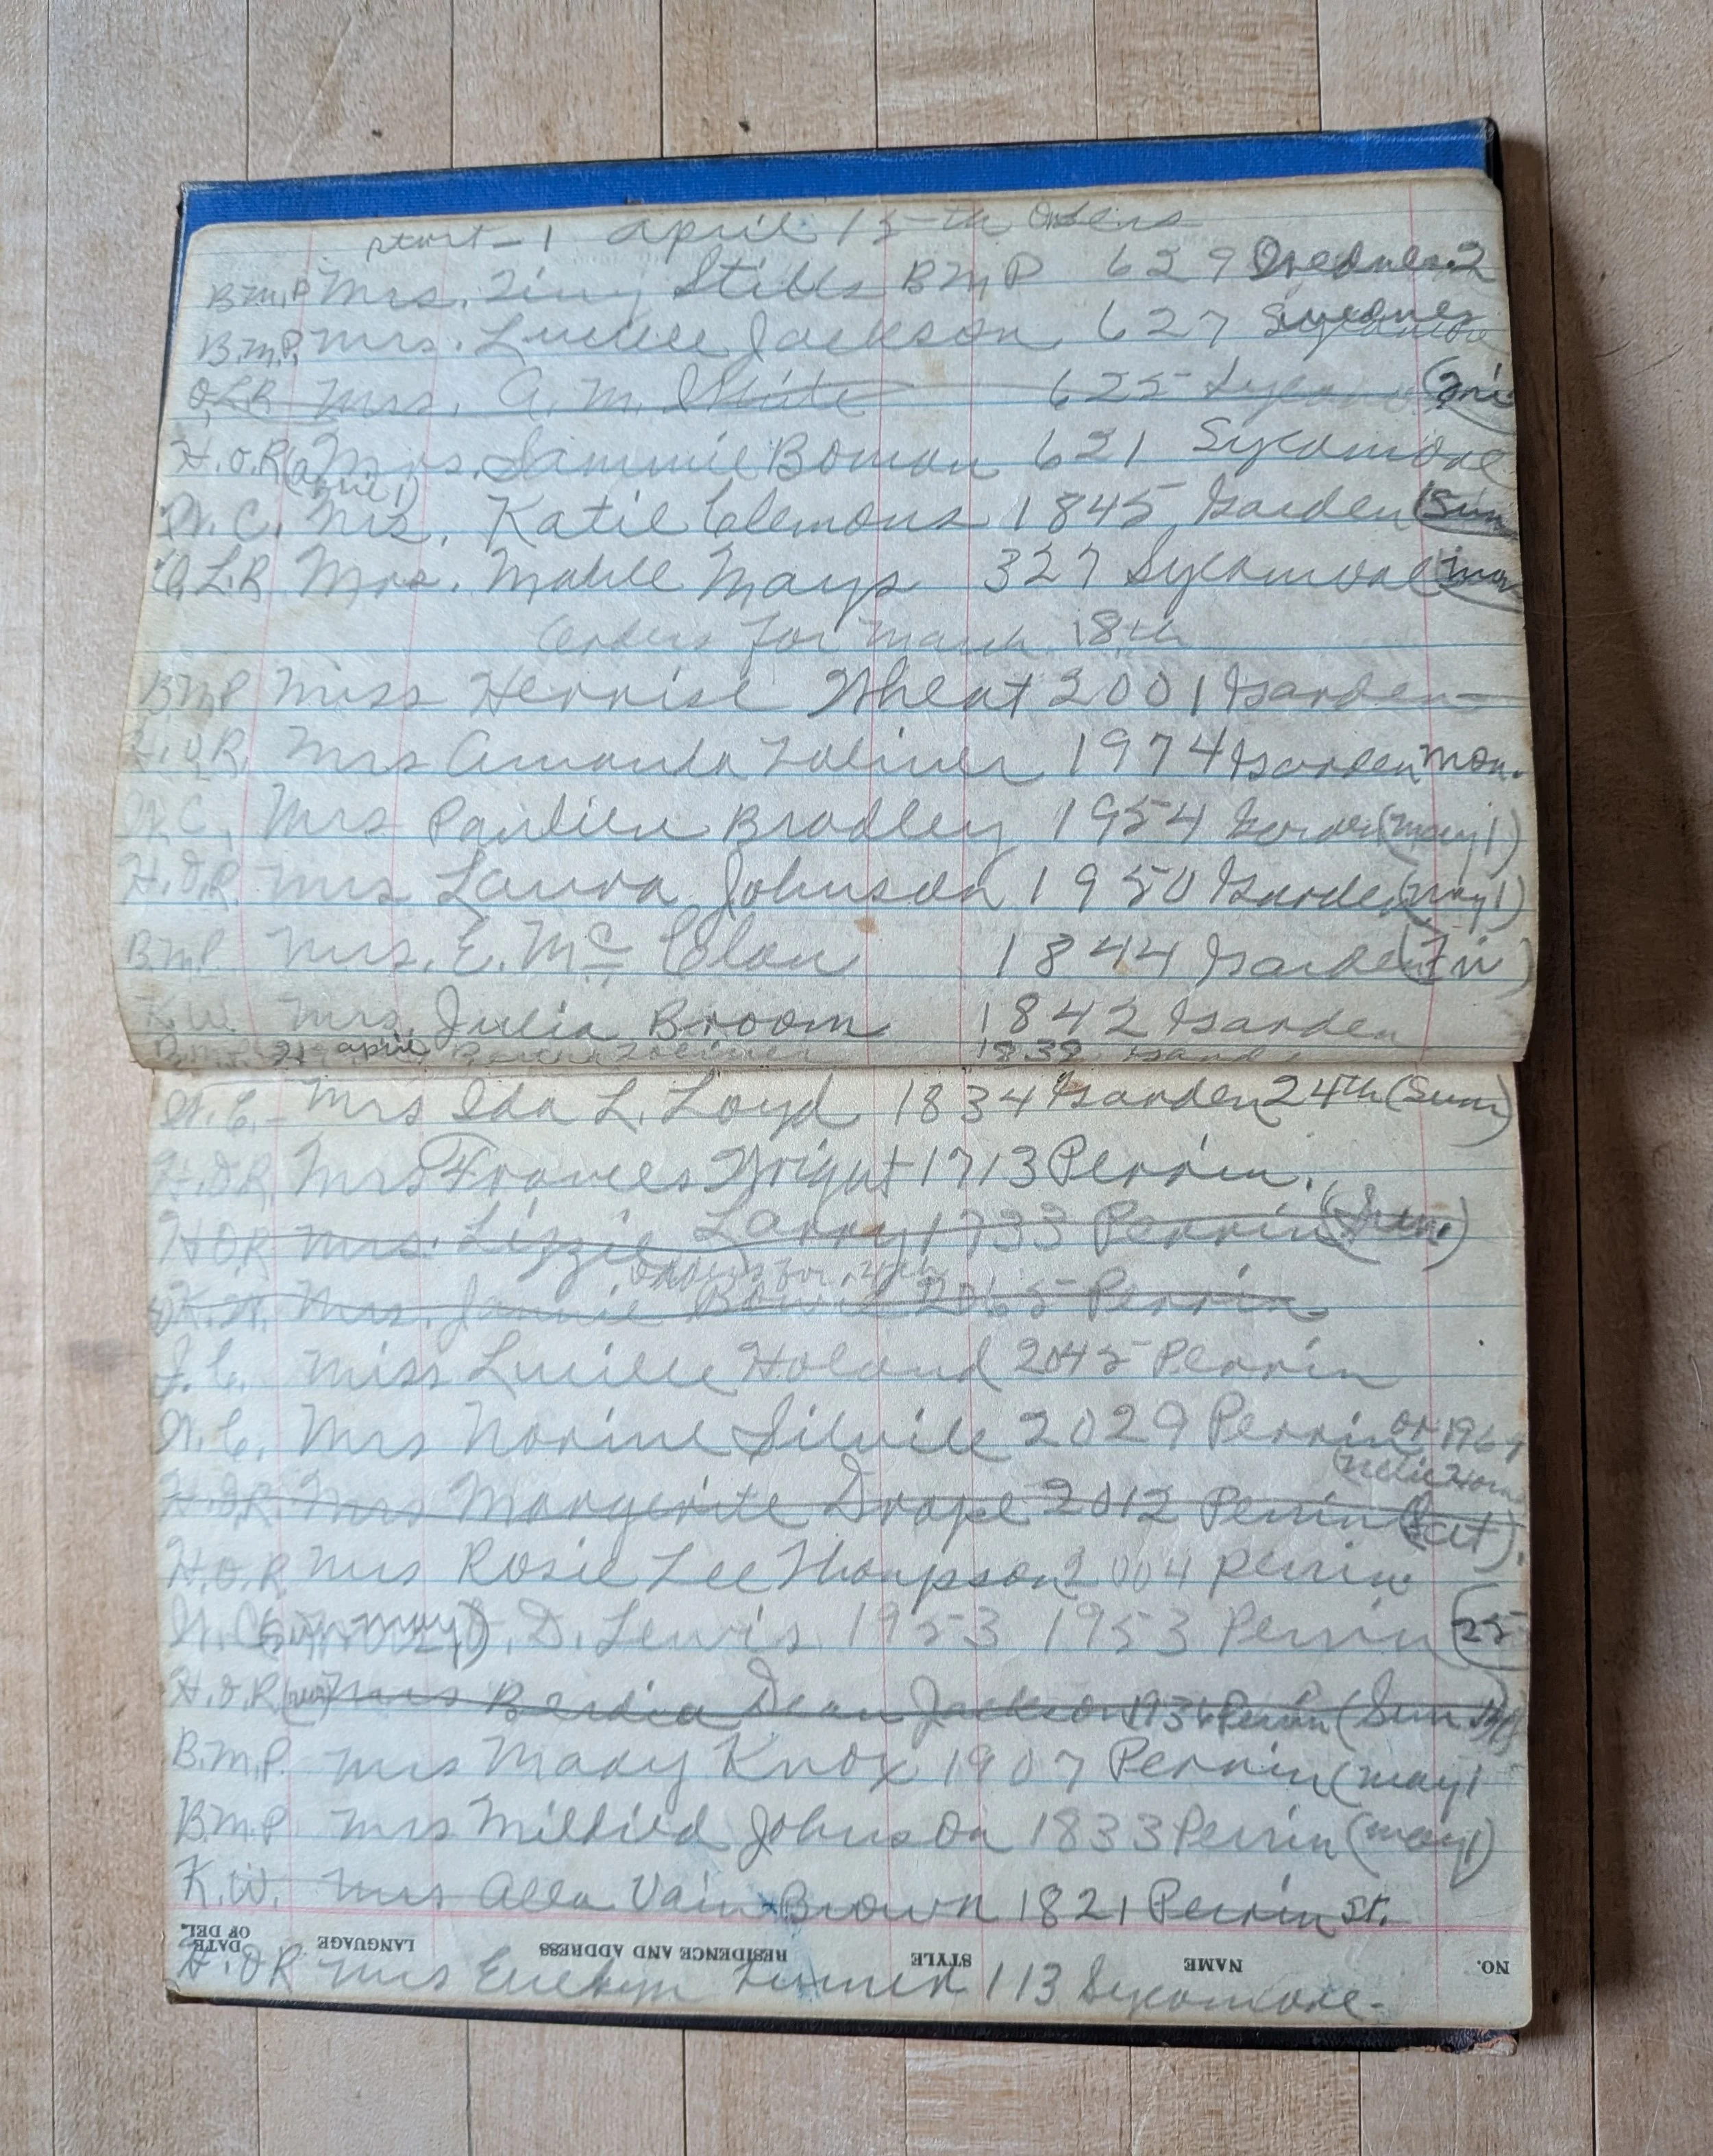 start-1 April 15th Orders
B.M.P. Mrs. Stibbs B M P 629 2
B.M.P. Mrs. Lucille Jackson 627 Sycamore
O.L.R Mrs. A. M. White 625 (Fri
H.O.R (April 1) Mrs. Sammie Boman 621 Sycamore
W.C. Mrs. Katie Clemons 1845 Garden (Sun
O.L.R Mrs. Mable Mays 327 Sycamore (Mon
Orders for March 18th
BMP Miss Herrise Wheat 2001 Garden
H.O.R. Mrs Amanda Toliver 1974 Garden Mon.
W.C. Mrs Paulien Bradley 1954 Garden (May 1)
H.O.R. Mrs Laura Johnson 1950 Garden (May 1)
B.M.P. Mrs. E. Mc Clan 1844 Garden (Fri)
K.W. Mrs. Julia Broom 1842 Garden
April Toliver 1838
W.C. - Mrs Ida L. Loyd 1834 Garden 24th (Sun)
H.O.R. Mrs Frances Wright 1713 Perrin.
H.O.R Mrs. Lizzie Larry 1733 Perrin (Sun.)
Orders for 4th
K.W. Mrs. Jannie 2065 Perrin
J.C. Miss Lucille Holand 2045 Perrin
W.C. Mrs Norine Silvile 2029 Perrin or 196
H.O.R Mrs Morgerite Drape 2012 Perrin (Sat).
H.O.R. Mrs Rosie Lee Thompson 2004 Perrin
W.C. May D. Lewis 1953 1953 Perrin (25
H.O.R Mrs Berdia Dean Jackson 1936 Perrin (Sun
B.M.P. Mrs Mary Knox 1907 Perrin (May 1
B.M.P Mrs Mildred Johnson 1833 Perrin (May 1)
K.W. Mrs Alla Vain Brown 1821 Perrin St.
NO. NAME STYLE RESIDENCE AND ADDRESS LANGUAGE DATE OF DEL.
H.O.R Mrs Evelyn Turner 113 Sycamore-